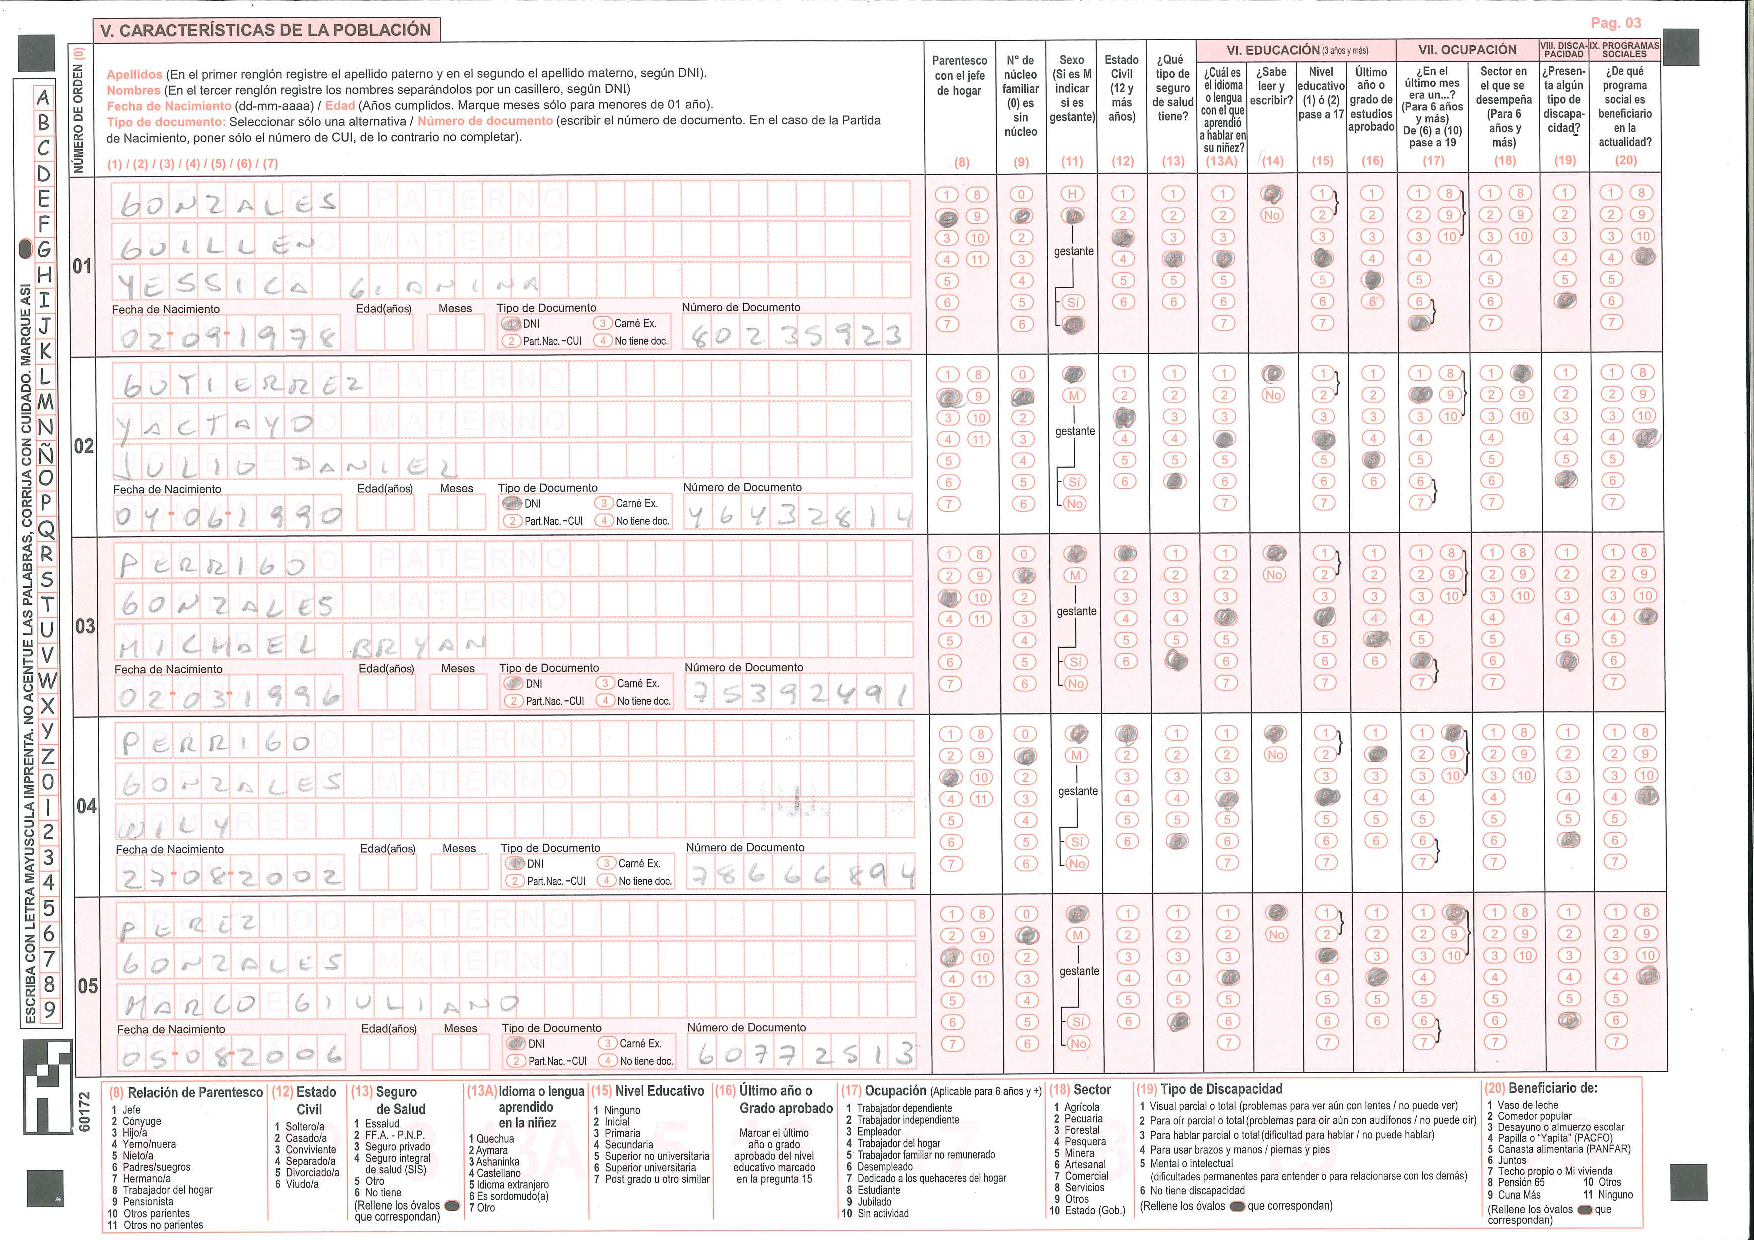 V. CARACTERÍSTICAS DE LA POBLACIÓN
Pag. 03
NÚMERO DE ORDEN (0)
Apellidos (En el primer renglón registre el apellido paterno y en el segundo el apellido materno, según DNI).
Nombres (En el tercer renglón registre los nombres separándolos por un casillero, según DNI)
Fecha de Nacimiento (dd-mm-aaaa) / Edad (Años cumplidos. Marque meses sólo para menores de 01 año).
Tipo de documento: Seleccionar sólo una alternativa / Número de documento (escribir el número de documento. En el caso de la Partida
de Nacimiento, poner sólo el número de CUI, de lo contrario no completar).
(1) / (2) / (3) / (4) / (5) / (6) / (7)
Parentesco con el jefe de hogar (8)
N° de núcleo familiar (0) es sin núcleo (9)
Sexo (Si es M indicar si es gestante) (11)
Estado Civil (12 y más años) (12)
¿Qué tipo de seguro de salud tiene? (13)
VI. EDUCACIÓN (3 años y más)
¿Cuál es el idioma o lengua con el que aprendió a hablar en su niñez? (13A)
¿Sabe leer y escribir? (14)
Nivel educativo (1) ó (2) pase a 17 (15)
Último año o grado de estudios aprobado (16)
VII. OCUPACIÓN
¿En el último mes era un...? (Para 6 años y más) De (6) a (10) pase a 19 (17)
Sector en el que se desempeña (Para 6 años y más) (18)
VIII. DISCAPACIDAD
¿Presenta algún tipo de discapacidad? (19)
IX. PROGRAMAS SOCIALES
¿De qué programa social es beneficiario en la actualidad? (20)
ESCRIBA CON LETRA MAYUSCULA IMPRENTA. NO ACENTUE LAS PALABRAS, CORRIJA CON CUIDADO. MARQUE ASI
A B C D E F G H I J K L M N Ñ O P Q R S T U V W X Y Z 0 1 2 3 4 5 6 7 8 9
01
GONZALES
GUILLEN
YESSICA GIANINA
Fecha de Nacimiento Edad(años) Meses Tipo de Documento Número de Documento
02-09-1978 1 DNI 3 Carné Ex. 2 Part.Nac.-CUI 4 No tiene doc. 80235923
gestante Sí
02
GUTIERREZ
YACTAYO
JULIO DANIEL
Fecha de Nacimiento Edad(años) Meses Tipo de Documento Número de Documento
04-06-1990 DNI 3 Carné Ex. 2 Part.Nac.-CUI 4 No tiene doc. 46432814
gestante Sí No
03
PERRIGO
GONZALES
MICHAEL BRYAN
Fecha de Nacimiento Edad(años) Meses Tipo de Documento Número de Documento
02-03-1996 DNI 3 Carné Ex. 2 Part.Nac.-CUI 4 No tiene doc. 75392491
gestante Sí No
04
PERRIGO
GONZALES
WILY
Fecha de Nacimiento Edad(años) Meses Tipo de Documento Número de Documento
27-08-2002 DNI 3 Carné Ex. 2 Part.Nac.-CUI 4 No tiene doc. 78666894
gestante Sí No
05
PEREZ
GONZALES
MARCO GIULIANO
Fecha de Nacimiento Edad(años) Meses Tipo de Documento Número de Documento
05-08-2006 DNI 3 Carné Ex. 2 Part.Nac.-CUI 4 No tiene doc. 60772513
gestante Sí No
60172
(8) Relación de Parentesco
1 Jefe
2 Cónyuge
3 Hijo/a
4 Yerno/nuera
5 Nieto/a
6 Padres/suegros
7 Hermano/a
8 Trabajador del hogar
9 Pensionista
10 Otros parientes
11 Otros no parientes
(12) Estado Civil
1 Soltero/a
2 Casado/a
3 Conviviente
4 Separado/a
5 Divorciado/a
6 Viudo/a
(13) Seguro de Salud
1 Essalud
2 FF.A. - P.N.P.
3 Seguro privado
4 Seguro integral de salud (SIS)
5 Otro
6 No tiene
(Rellene los óvalos que correspondan)
(13A) Idioma o lengua aprendido en la niñez
1 Quechua
2 Aymara
3 Ashaninka
4 Castellano
5 Idioma extranjero
6 Es sordomudo(a)
7 Otro
(15) Nivel Educativo
1 Ninguno
2 Inicial
3 Primaria
4 Secundaria
5 Superior no universitaria
6 Superior universitaria
7 Post grado u otro similar
(16) Último año o Grado aprobado
Marcar el último año o grado aprobado del nivel educativo marcado en la pregunta 15
(17) Ocupación (Aplicable para 6 años y +)
1 Trabajador dependiente
2 Trabajador independiente
3 Empleador
4 Trabajador del hogar
5 Trabajador familiar no remunerado
6 Desempleado
7 Dedicado a los quehaceres del hogar
8 Estudiante
9 Jubilado
10 Sin actividad
(18) Sector
1 Agrícola
2 Pecuaria
3 Forestal
4 Pesquera
5 Minera
6 Artesanal
7 Comercial
8 Servicios
9 Otros
10 Estado (Gob.)
(19) Tipo de Discapacidad
1 Visual parcial o total (problemas para ver aún con lentes / no puede ver)
2 Para oír parcial o total (problemas para oír aún con audífonos / no puede oír)
3 Para hablar parcial o total (dificultad para hablar / no puede hablar)
4 Para usar brazos y manos / piernas y pies
5 Mental o intelectual
(dificultades permanentes para entender o para relacionarse con los demás)
6 No tiene discapacidad
(Rellene los óvalos que correspondan)
(20) Beneficiario de:
1 Vaso de leche
2 Comedor popular
3 Desayuno o almuerzo escolar
4 Papilla o "Yapita" (PACFO)
5 Canasta alimentaria (PANFAR)
6 Juntos
7 Techo propio o Mi vivienda
8 Pensión 65 10 Otros
9 Cuna Más 11 Ninguno
(Rellene los óvalos que correspondan)